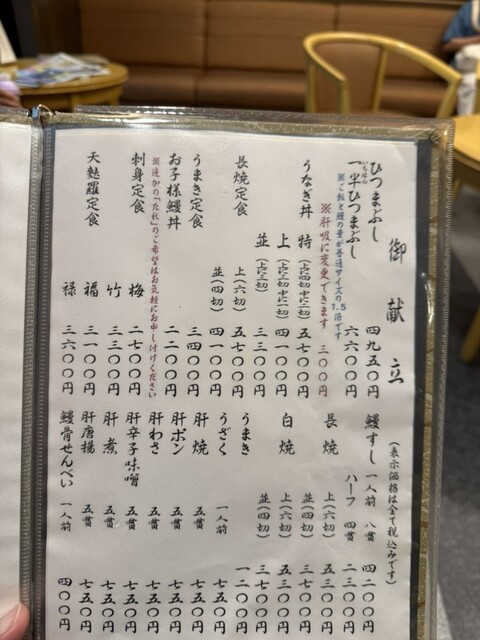 御献立
(表示価格は全て税込みです)
ひつまぶし 四九五〇円
いちはん
一半ひつまぶし 六六〇〇円
※ご飯と鰻の量が普通サイズの1.5倍です
※肝吸に変更できます 三〇〇円
うなぎ丼 特(上に四切中に二切) 五七〇〇円
上(上に三切中に一切) 四一〇〇円
並(上に三切) 三三〇〇円
長焼定食 上(六切) 五七〇〇円
並(四切) 四一〇〇円
うまき定食 三四〇〇円
お子様鰻丼 二二〇〇円
※追加の「たれ」のご希望はお気軽にお申し付けください
刺身定食 梅 二七〇〇円
竹 三三〇〇円
天麩羅定食 福 三一〇〇円
禄 三六〇〇円
鰻すし 一人前 八貫 四二〇〇円
ハーフ 四貫 二三〇〇円
長焼 上(六切) 五三〇〇円
並(四切) 三七〇〇円
白焼 上(六切) 五三〇〇円
並(四切) 三七〇〇円
うまき 一二〇〇円
うざく 一人前 七五〇円
肝焼 五貫 七五〇円
肝ポン 五貫 七五〇円
肝わさ 五貫 七五〇円
肝辛子味噌 五貫 七五〇円
肝煮 五貫 七五〇円
肝唐揚 五貫 七五〇円
鰻骨せんべい 一人前 四〇〇円